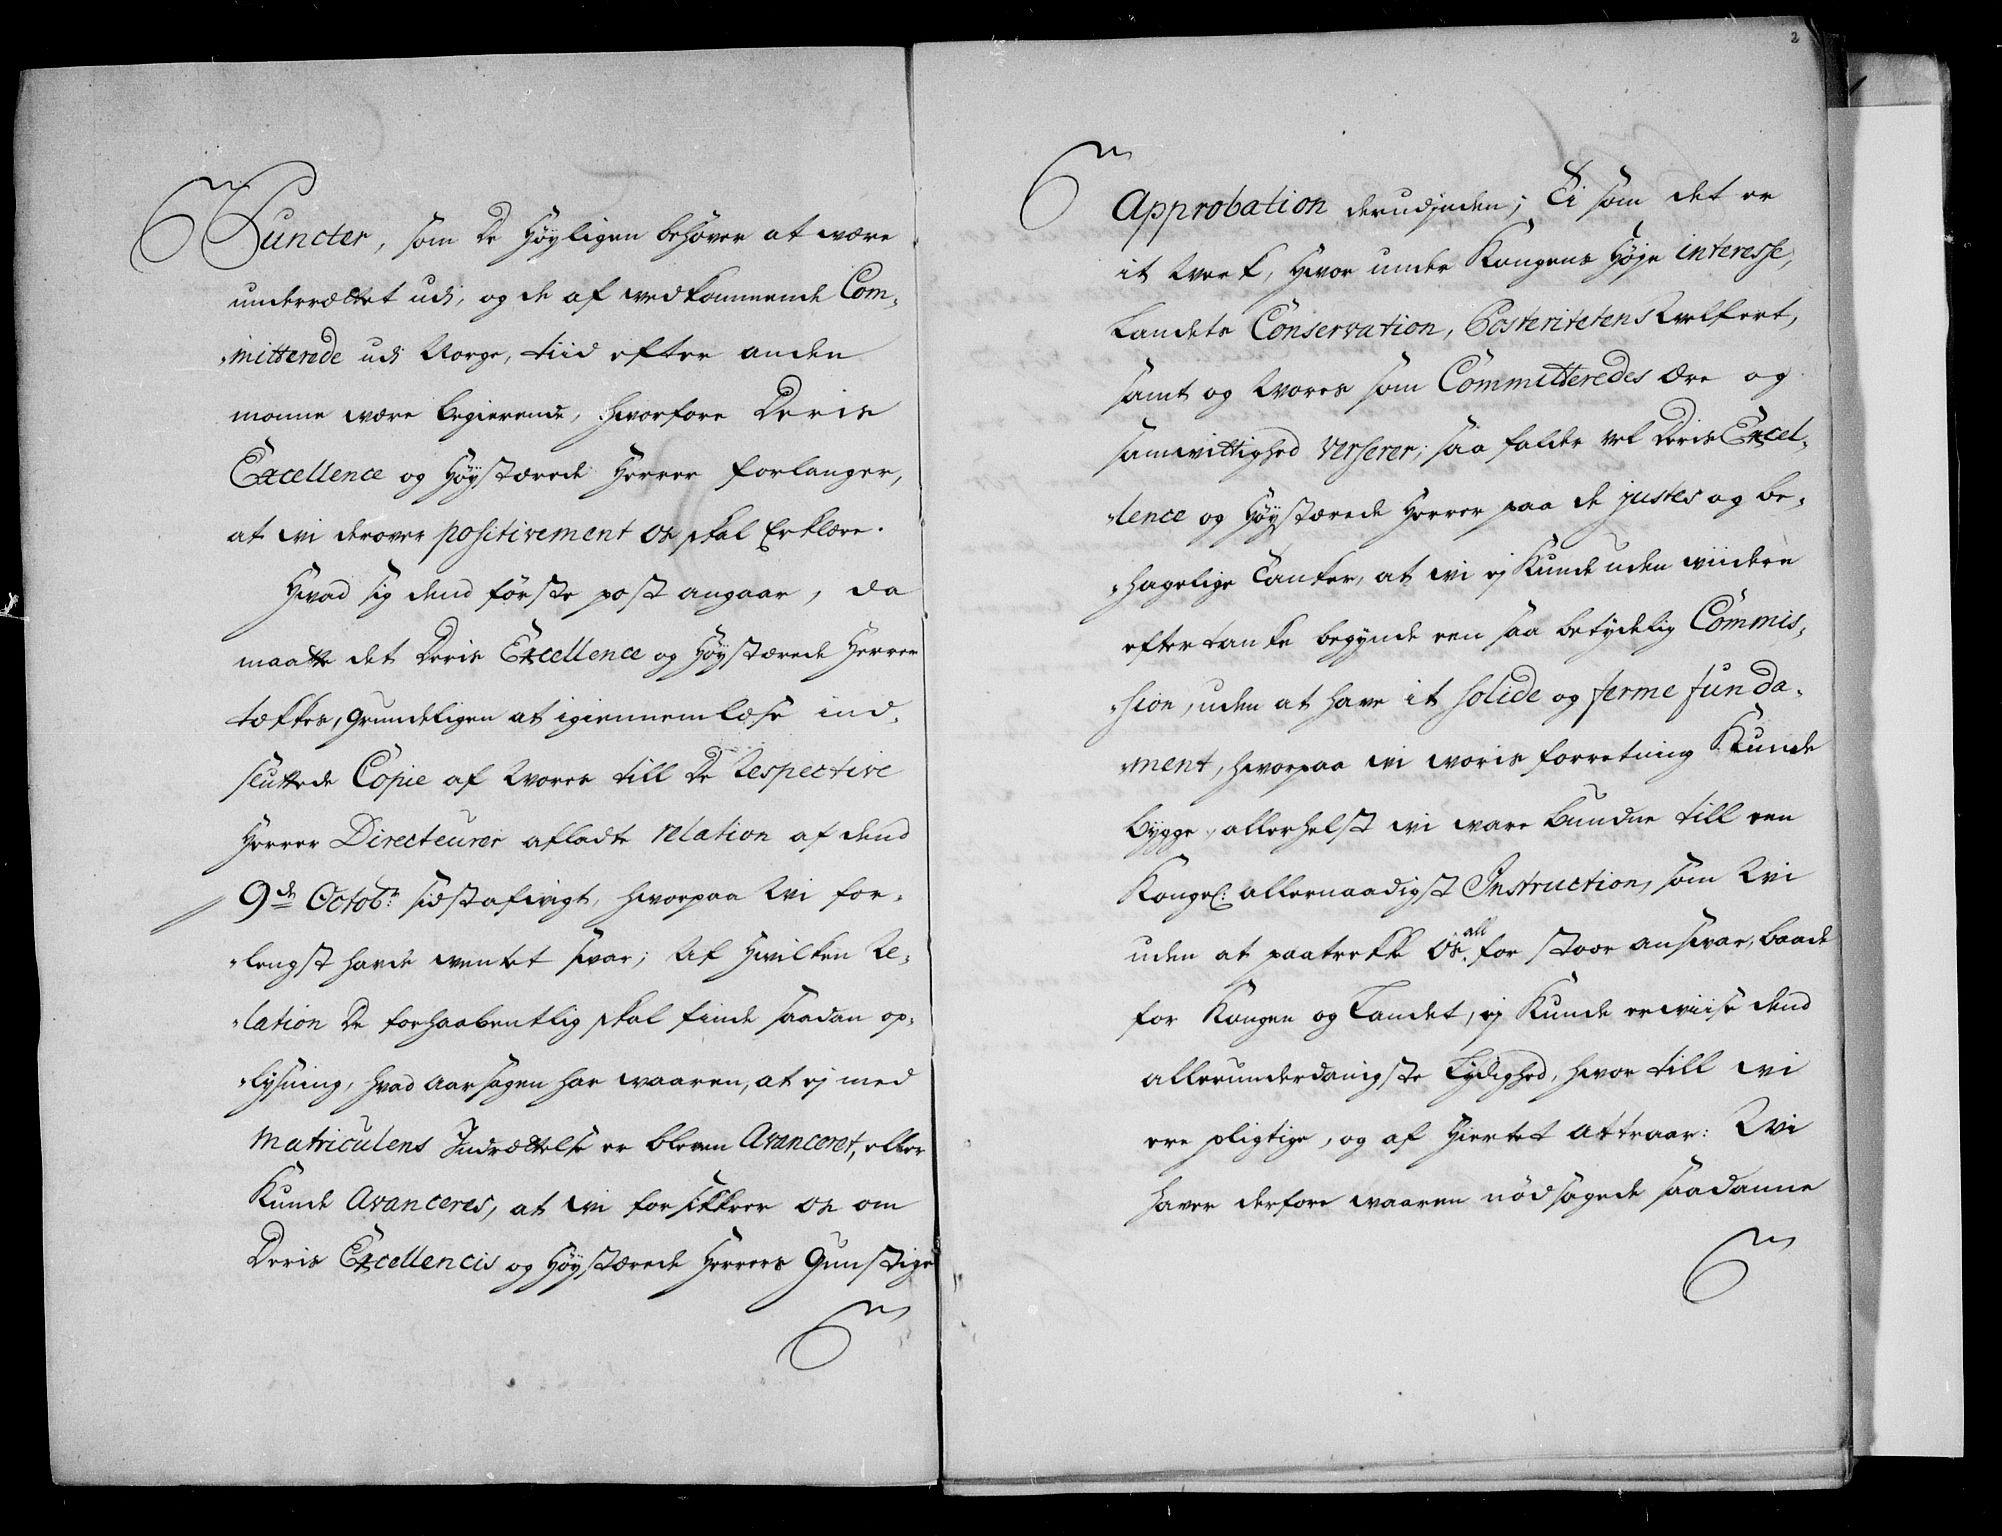 Puncter, som De Höyligen behöver at være
underrættet udi, og de af vedkommende Com„
„mitterede udi Norge, tiid efter anden
monne være begierende, hvorfore Deris
Excellence og Höystærede Herrer forlanger,
at vi derover positivement os skal Erklære.
Hvad sig dend förste post angaar, da
maatte det Deris Excellence og Höystærede Herrer
tækkes, grundeligen at igiennemlæse ind„
sluttede Copie af Vores till De Respective
Herrer Directeurer afladte relation af dend
9de Octobr: sidstafvigt, hvorpaa Vi for„
„lengst havde ventet svar; Af Hvilken Re„
„lation De forhaabentlig skal finde saadan op„
„lysning, hvad aarsagen har vaaren, at ej med
Matriculens Indrættelse er bleven Avanceret, eller
Kunde Avanceres, at vi forsikkrer os om
Deris Excellencis og Höystærede Herrers Gunstige
2
Approbation derudjnden; Ti som det er
it Verk, Hvor under Kongens Höje interesse,
Landets Conservation, Posteritetens Velfert,
samt og Vores som Committeredes Ære og
samvittighed verserer; saa falder vel Deris Excel„
„lence og Höystærede Herrer paa de justes og be„
„hagelige Tanker, at vi ej Kunde uden viidere
eftertanke begynde een saa betydelig Commis„
„sion, uden at have it solide og ferme funda„
„ment, hvorpaa vi voris forretning Kunde
bygge, allerhelst vi vare bundne till een
Kongel: allernaadigst Instruction, som Vi
uden at paatrekke Os all for stoor ansvar, baade
for Kongen og Landet, ej Kunde erviise dend
allerunderdanigste Lydighed, hvor till vi
ere pligtige, og af Hiertet attraar: Vi
haver derfore vaaren nödsagede saadanne